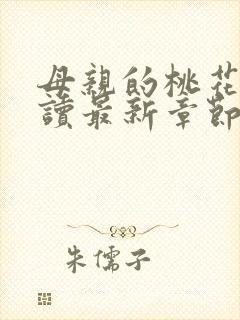 母親的桃花
讀最新章節
朱儒子